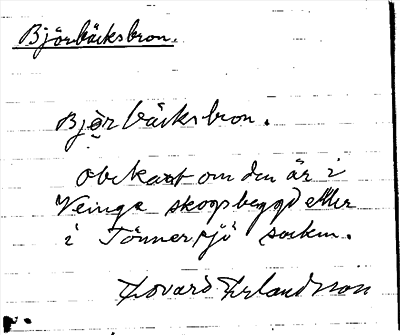 Björbäcksbron.
Björbäcksbron.
obekant om den är i
Veinge skogsbygd eller
i Tönnersjö socken.
Edvard Erlandsson